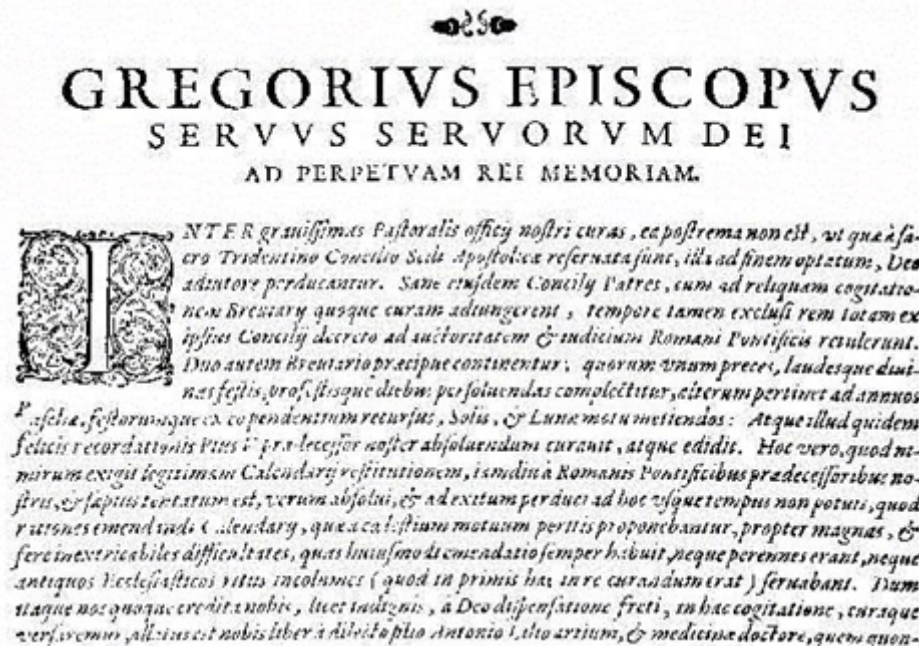 GREGORIVS EPISCOPVS
SERVVS SERVORVM DEI
AD PERPETVAM REI MEMORIAM.
INTER grauiſſimas Paſtoralis officij noſtri curas, ea poſtrema non eſt, vt quæ à ſa-
cro Tridentino Concilio Sedi Apoſtolicæ reſeruata ſunt, illa ad finem optatum, Deo
adiutore perducantur. Sane eiuſdem Concilij Patres, cum ad reliquam cogitatio-
nem Breuiarij quoque curam adiungerent, tempore tamen excluſi rem totam ex
ipſius Concilij decreto ad auctoritatem & iudicium Romani Pontificis retulerunt.
Duo autem Breuiario præcipue continentur: quorum vnum preces, laudesque diui-
nas feſtis, profeſtisque diebus perſoluendas complectitur, alterum pertinet ad annuos
Paſchæ, feſtorumque ex eo pendentium recurſus, Solis, & Lunæ motu metiendos: Atque illud quidem
felicis recordationis Pius V prædeceſſor noſter abſoluendum curauit, atque edidit. Hoc vero, quod ni-
mirum exigit legitimam Calendarij reſtitutionem, iamdiu à Romanis Pontificibus prædeceſſoribus no-
ſtris, & ſæpius tentatum eſt, verum abſolui, & ad exitum perduci ad hoc vſque tempus non potuit, quod
rationes emendandi Calendarij, quæ a cæleſtium motuum peritis proponebantur, propter magnas, &
fere inextricabiles difficultates, quas huiuſmodi emendatio ſemper habuit, neque perennes erant, neque
antiquos Eccleſiaſticos ritus incolumes (quod in primis hac in re curandum erat) ſeruabant. Dum
itaque nos quoque credita nobis, licet indignis, a Deo diſpenſatione freti, in hac cogitatione, curaque
verſaremur, allatus eſt nobis liber à dilecto filio Antonio Lilio artium, & medicinæ doctore, quem quon-